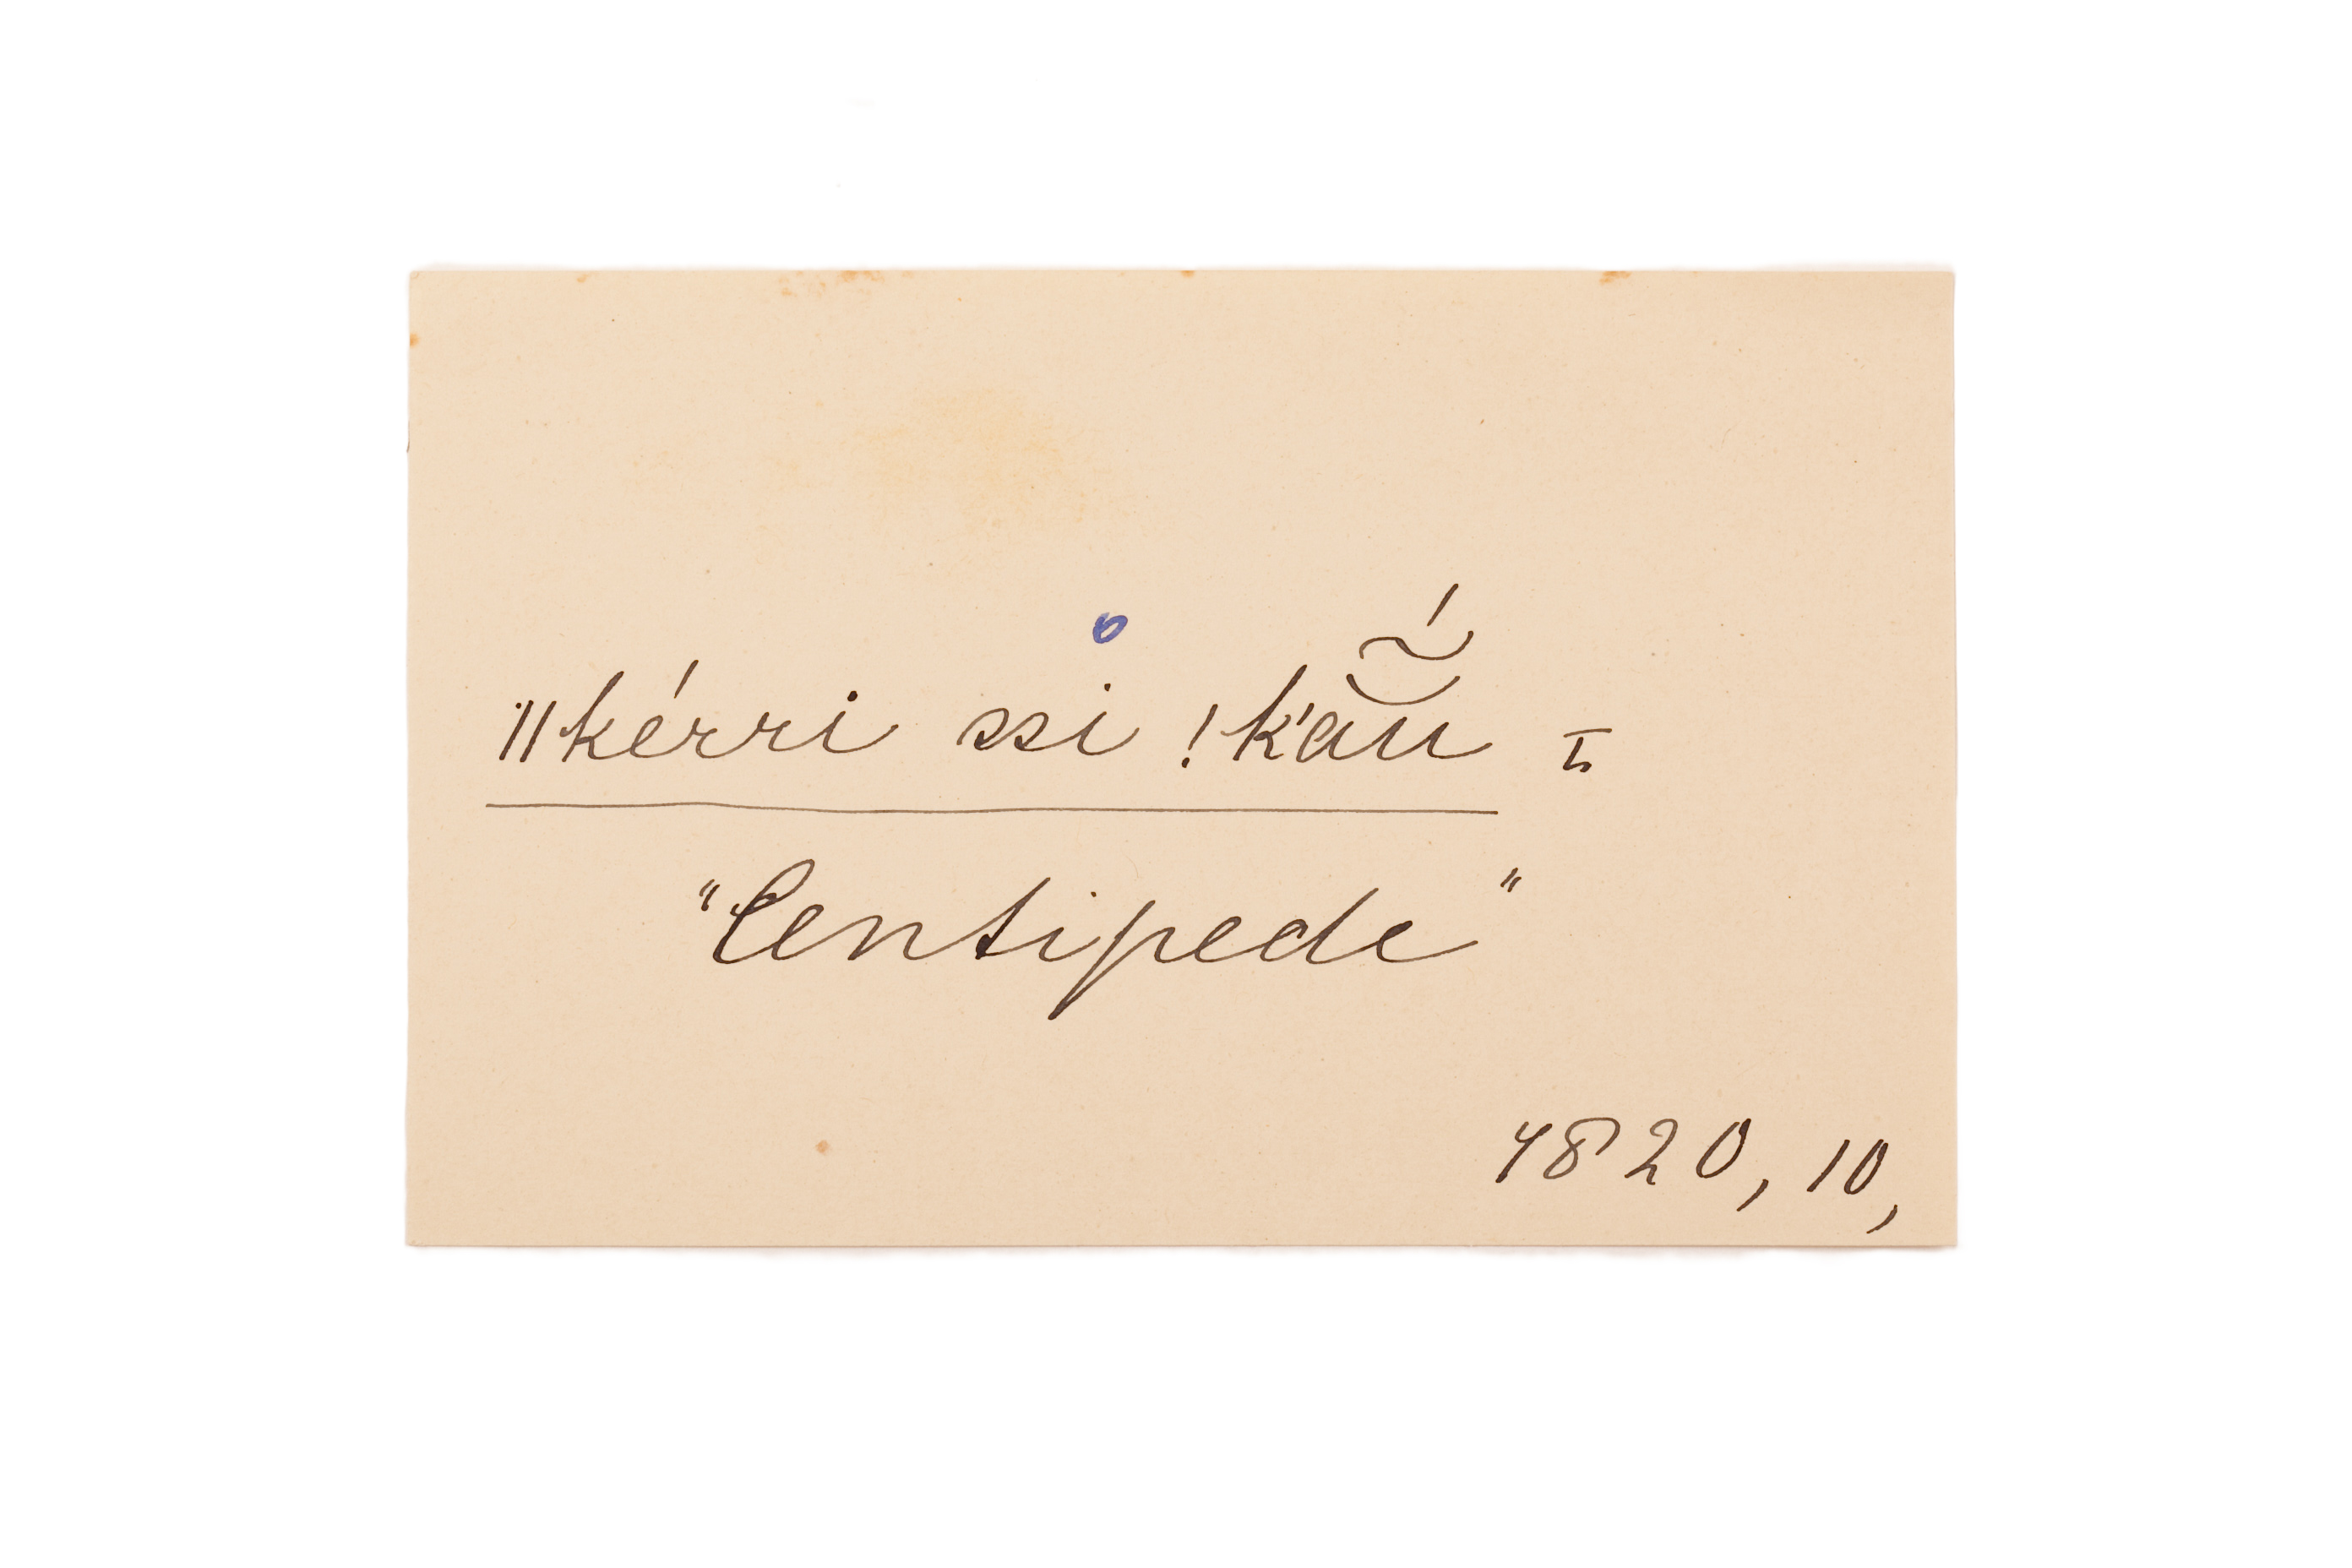 ǁkérri ssi !k'ắ̰ũ =
"Centipede"
4820, 10,